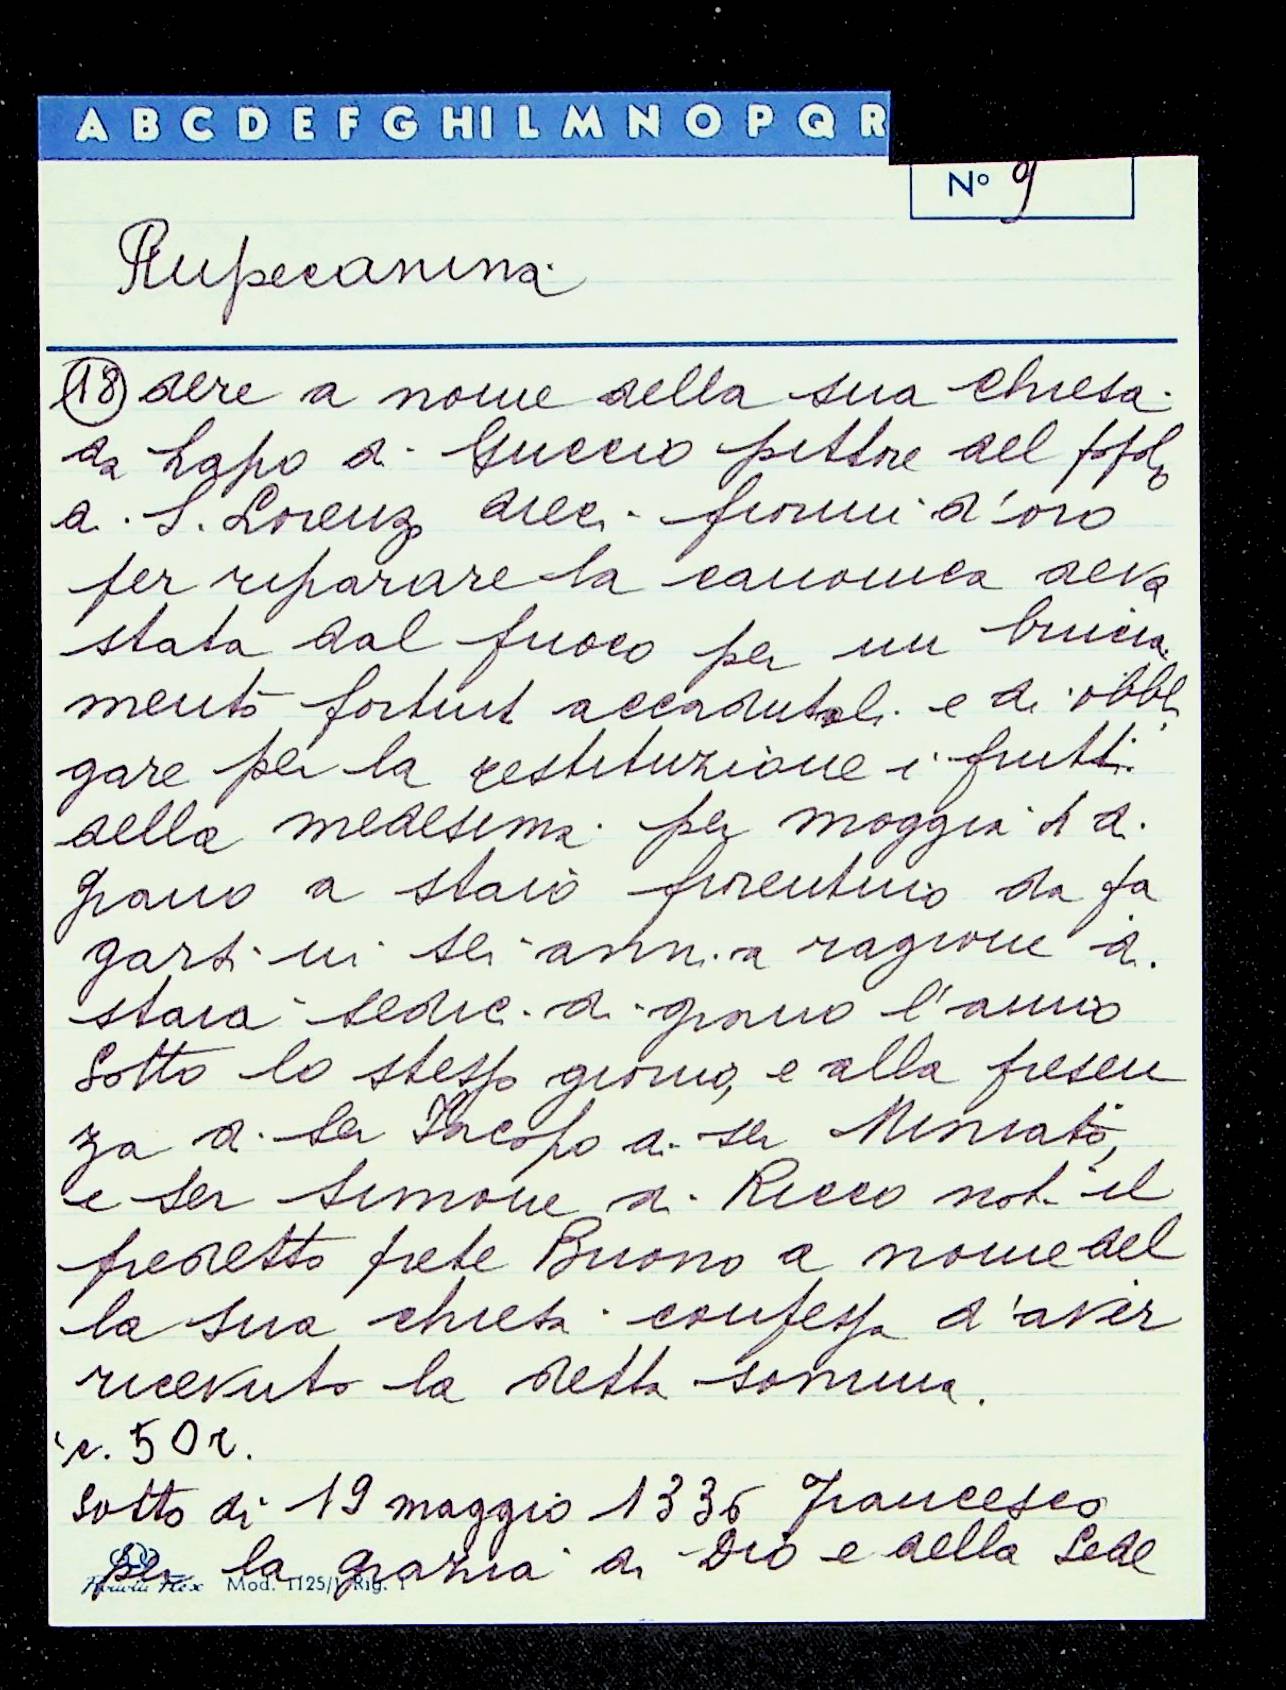 A B C D E F G H I L M N O P Q R
Nº 9
Rupecanina
(18) dere a nome della sua chiesa
da Lapo di Guccio pittore del pplo
di S. Lorenzo dieci fiorini d'oro
per riparare la canonica deva
stata dal fuoco per un brucia
mento fortuit accadutoli e di obbli
gare per la restituzione i frutti
della medesima per moggia di
grano a staio fiorentino da pa
garsi in sei anni a ragione di
staia sedici di grano l'anno
Sotto lo stesso giorno, e alla presen
za di ser Iacopo di ser Miniato,
e ser Simone di Ricco not. il
predetto prete Buono a nome del
la sua chiesa confessa d'aver
ricevuto la detta somma.
c. 50r.
Sotto di 19 maggio 1336 Francesco
per la grazia di Dio e della Sede
Mod. 1125/1 Rig. 1